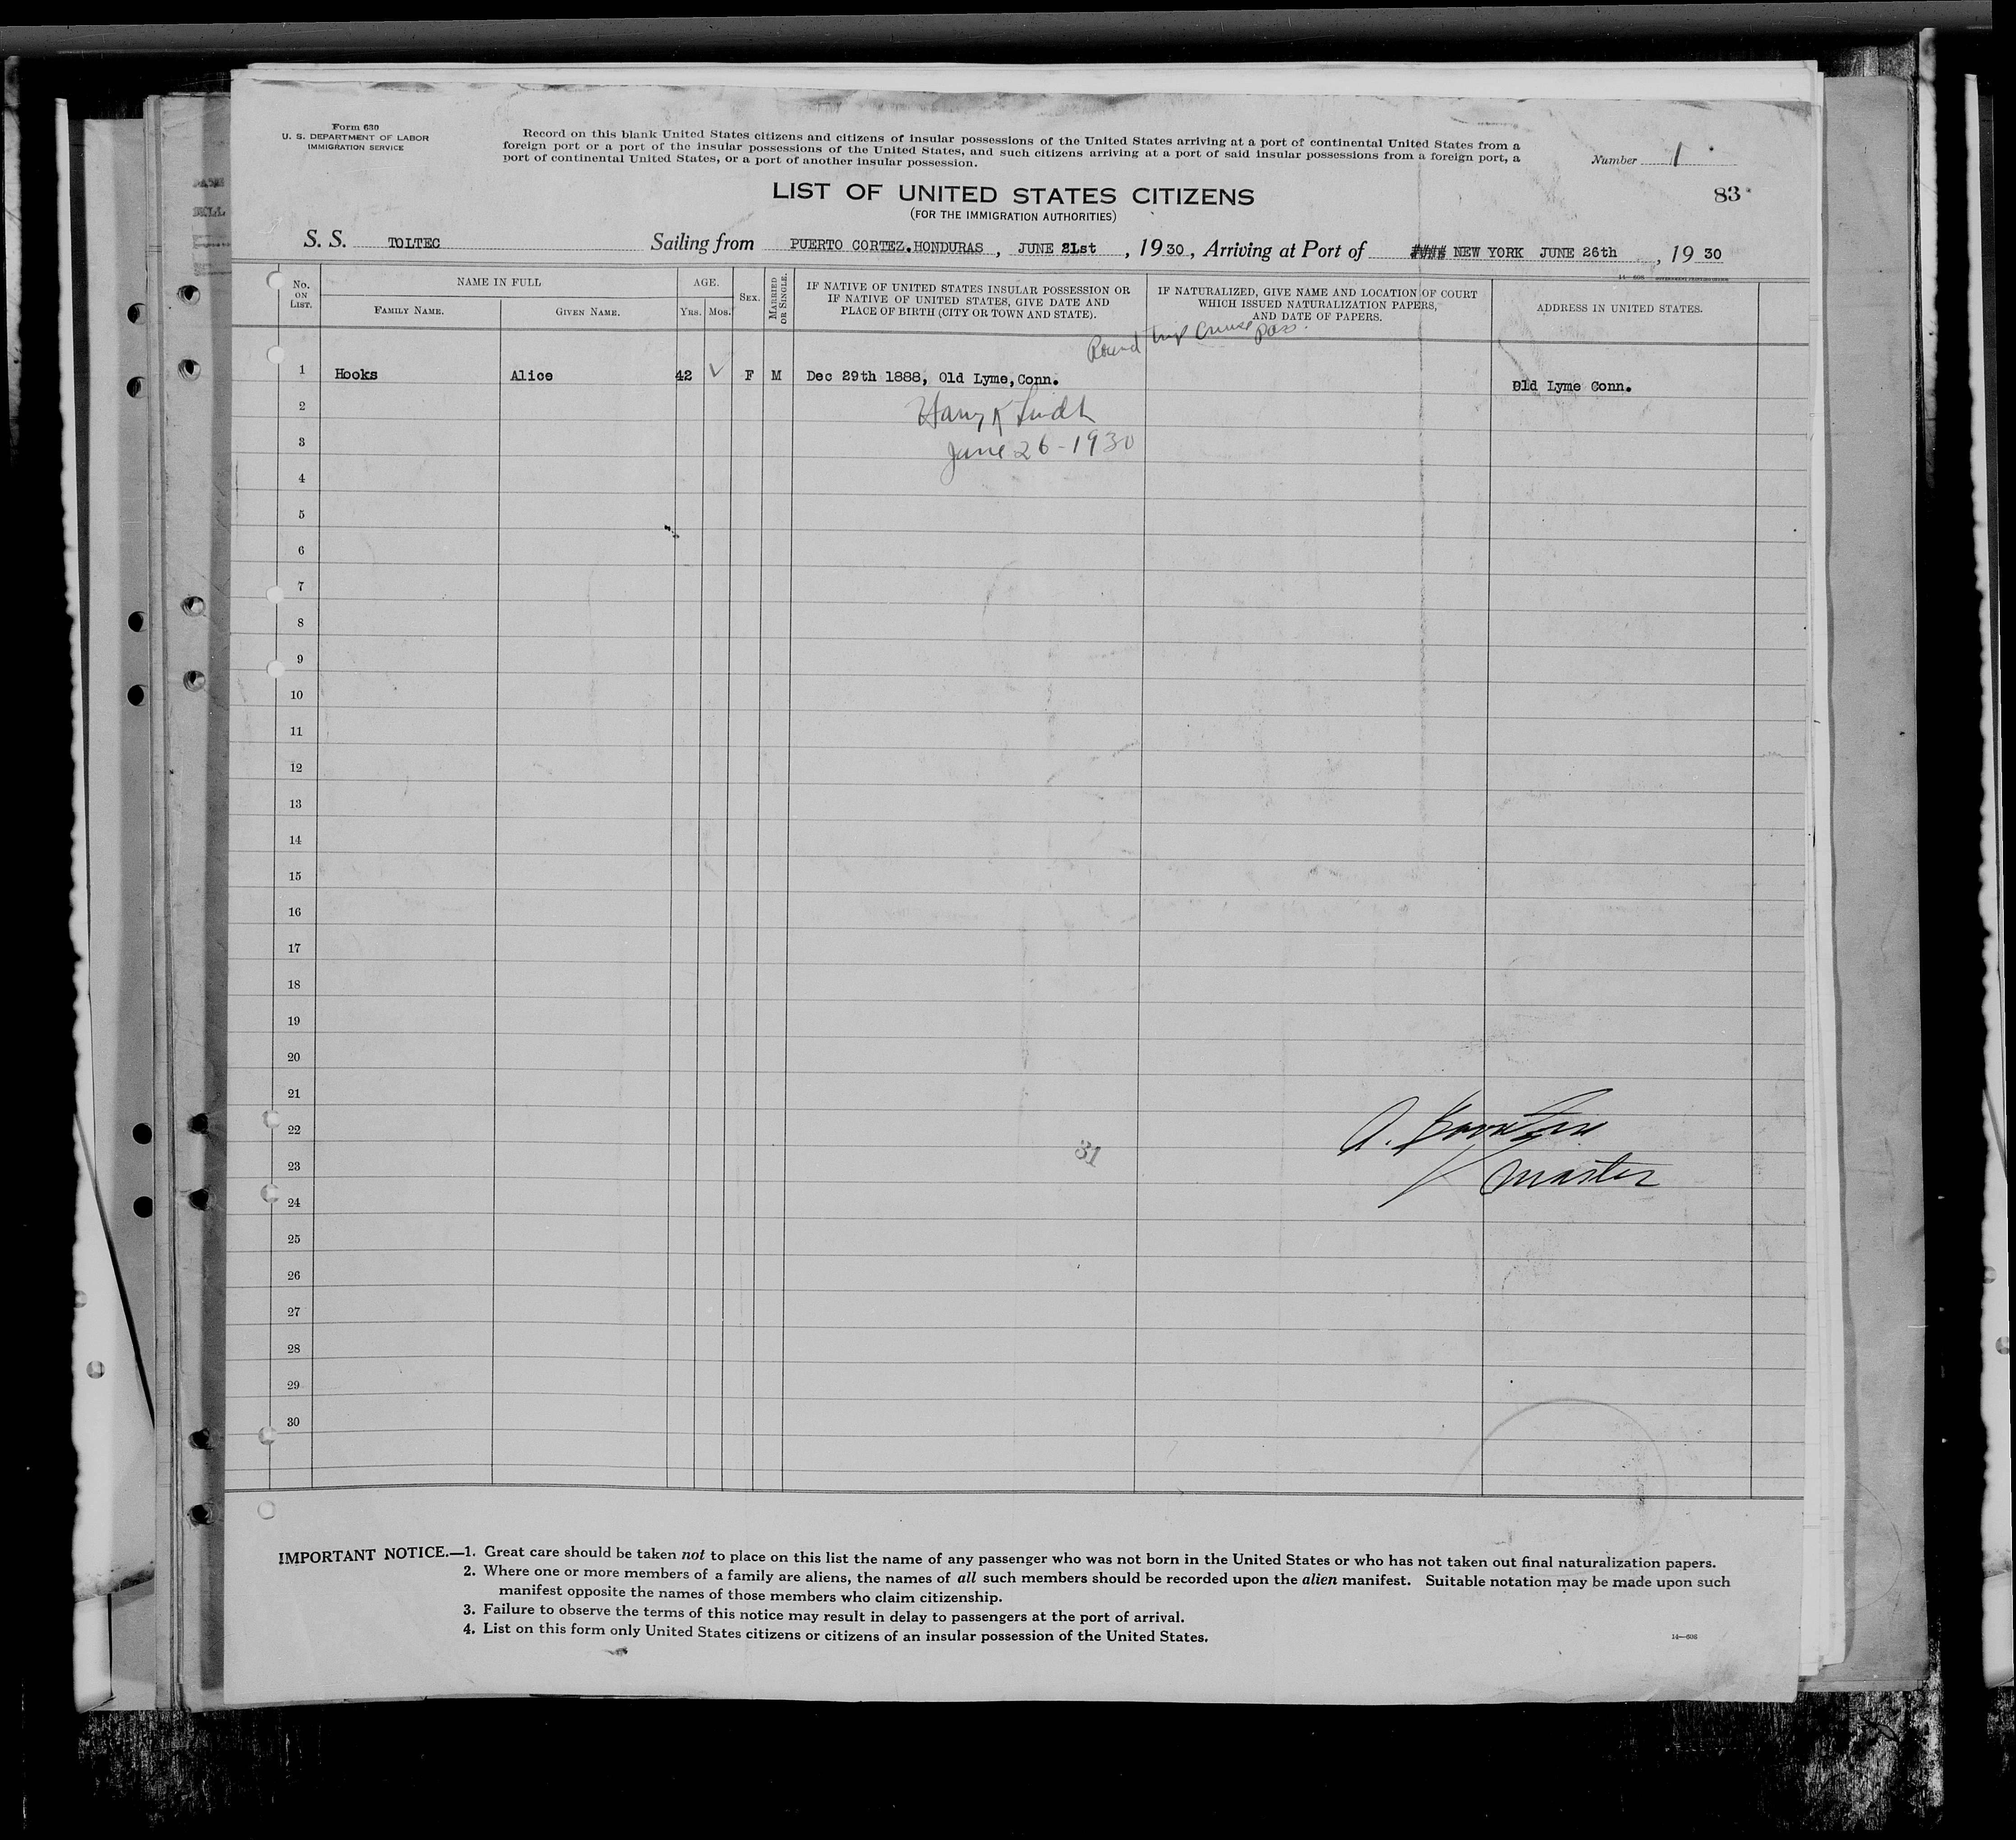 Form 630
U. S. DEPARTMENT OF LABOR
IMMIGRATION SERVICE
Record on this blank United States citizens and citizens of insular possessions of the United States arriving at a port of continental United States from a
foreign port or a port of the insular possessions of the United States, and such citizens arriving at a port of said insular possessions from a foreign port, a
port of continental United States, or a port of another insular possession.
Number 1
LIST OF UNITED STATES CITIZENS
(FOR THE IMMIGRATION AUTHORITIES)
83
S. S. TOLTEC Sailing from PUERTO CORTEZ.HONDURAS , JUNE 21st , 1930 , Arriving at Port of NEW YORK JUNE 26th , 1930
14—608
No. ON LIST.
NAME IN FULL
FAMILY NAME.
GIVEN NAME.
AGE.
YRS. MOS.
SEX.
MARRIED OR SINGLE.
IF NATIVE OF UNITED STATES INSULAR POSSESSION OR
IF NATIVE OF UNITED STATES, GIVE DATE AND
PLACE OF BIRTH (CITY OR TOWN AND STATE).
IF NATURALIZED, GIVE NAME AND LOCATION OF COURT
WHICH ISSUED NATURALIZATION PAPERS,
AND DATE OF PAPERS.
ADDRESS IN UNITED STATES.
Round trip cruise pass.
1 Hooks Alice 42 ✓ F M Dec 29th 1888, Old Lyme,Conn. Old Lyme Conn.
2 Harry K
3 June 26-1930
4
5
6
7
8
9
10
11
12
13
14
15
16
17
18
19
20
21
22
23 31
master
24
25
26
27
28
29
30
IMPORTANT NOTICE.—1. Great care should be taken not to place on this list the name of any passenger who was not born in the United States or who has not taken out final naturalization papers.
2. Where one or more members of a family are aliens, the names of all such members should be recorded upon the alien manifest. Suitable notation may be made upon such
manifest opposite the names of those members who claim citizenship.
3. Failure to observe the terms of this notice may result in delay to passengers at the port of arrival.
4. List on this form only United States citizens or citizens of an insular possession of the United States.
14—608